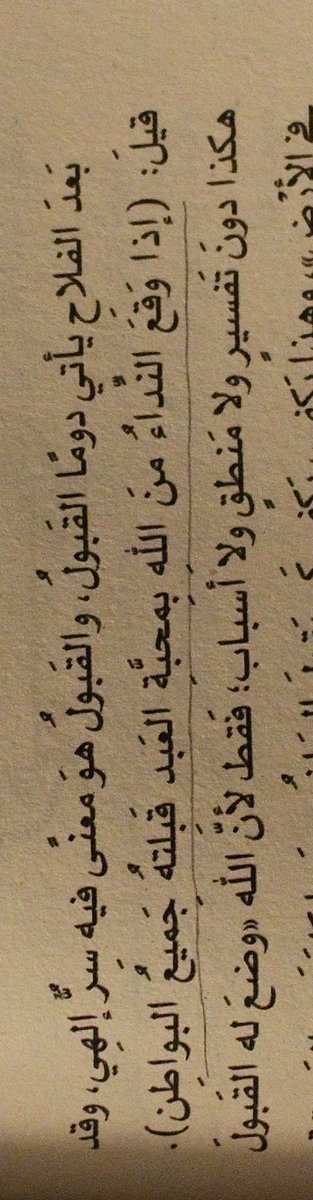 بَعدَ الفلاح يأتي دومًا القَبولُ، والقَبولُ هوَ معنًى فيه سَرٌّ إلهِي، وقد
قيلَ: (إذا وَقَعَ النِّداءُ منَ الله بمحبَّة العَبد قَبلَتهُ جَميعُ البواطن).
هكذا دونَ تفسيرٍ ولا مَنطقٍ ولا أسبَاب؛ فقَط لأنَّ الله «وضعَ له القَبولَ
في الأرْض»، وهذا يَكفي